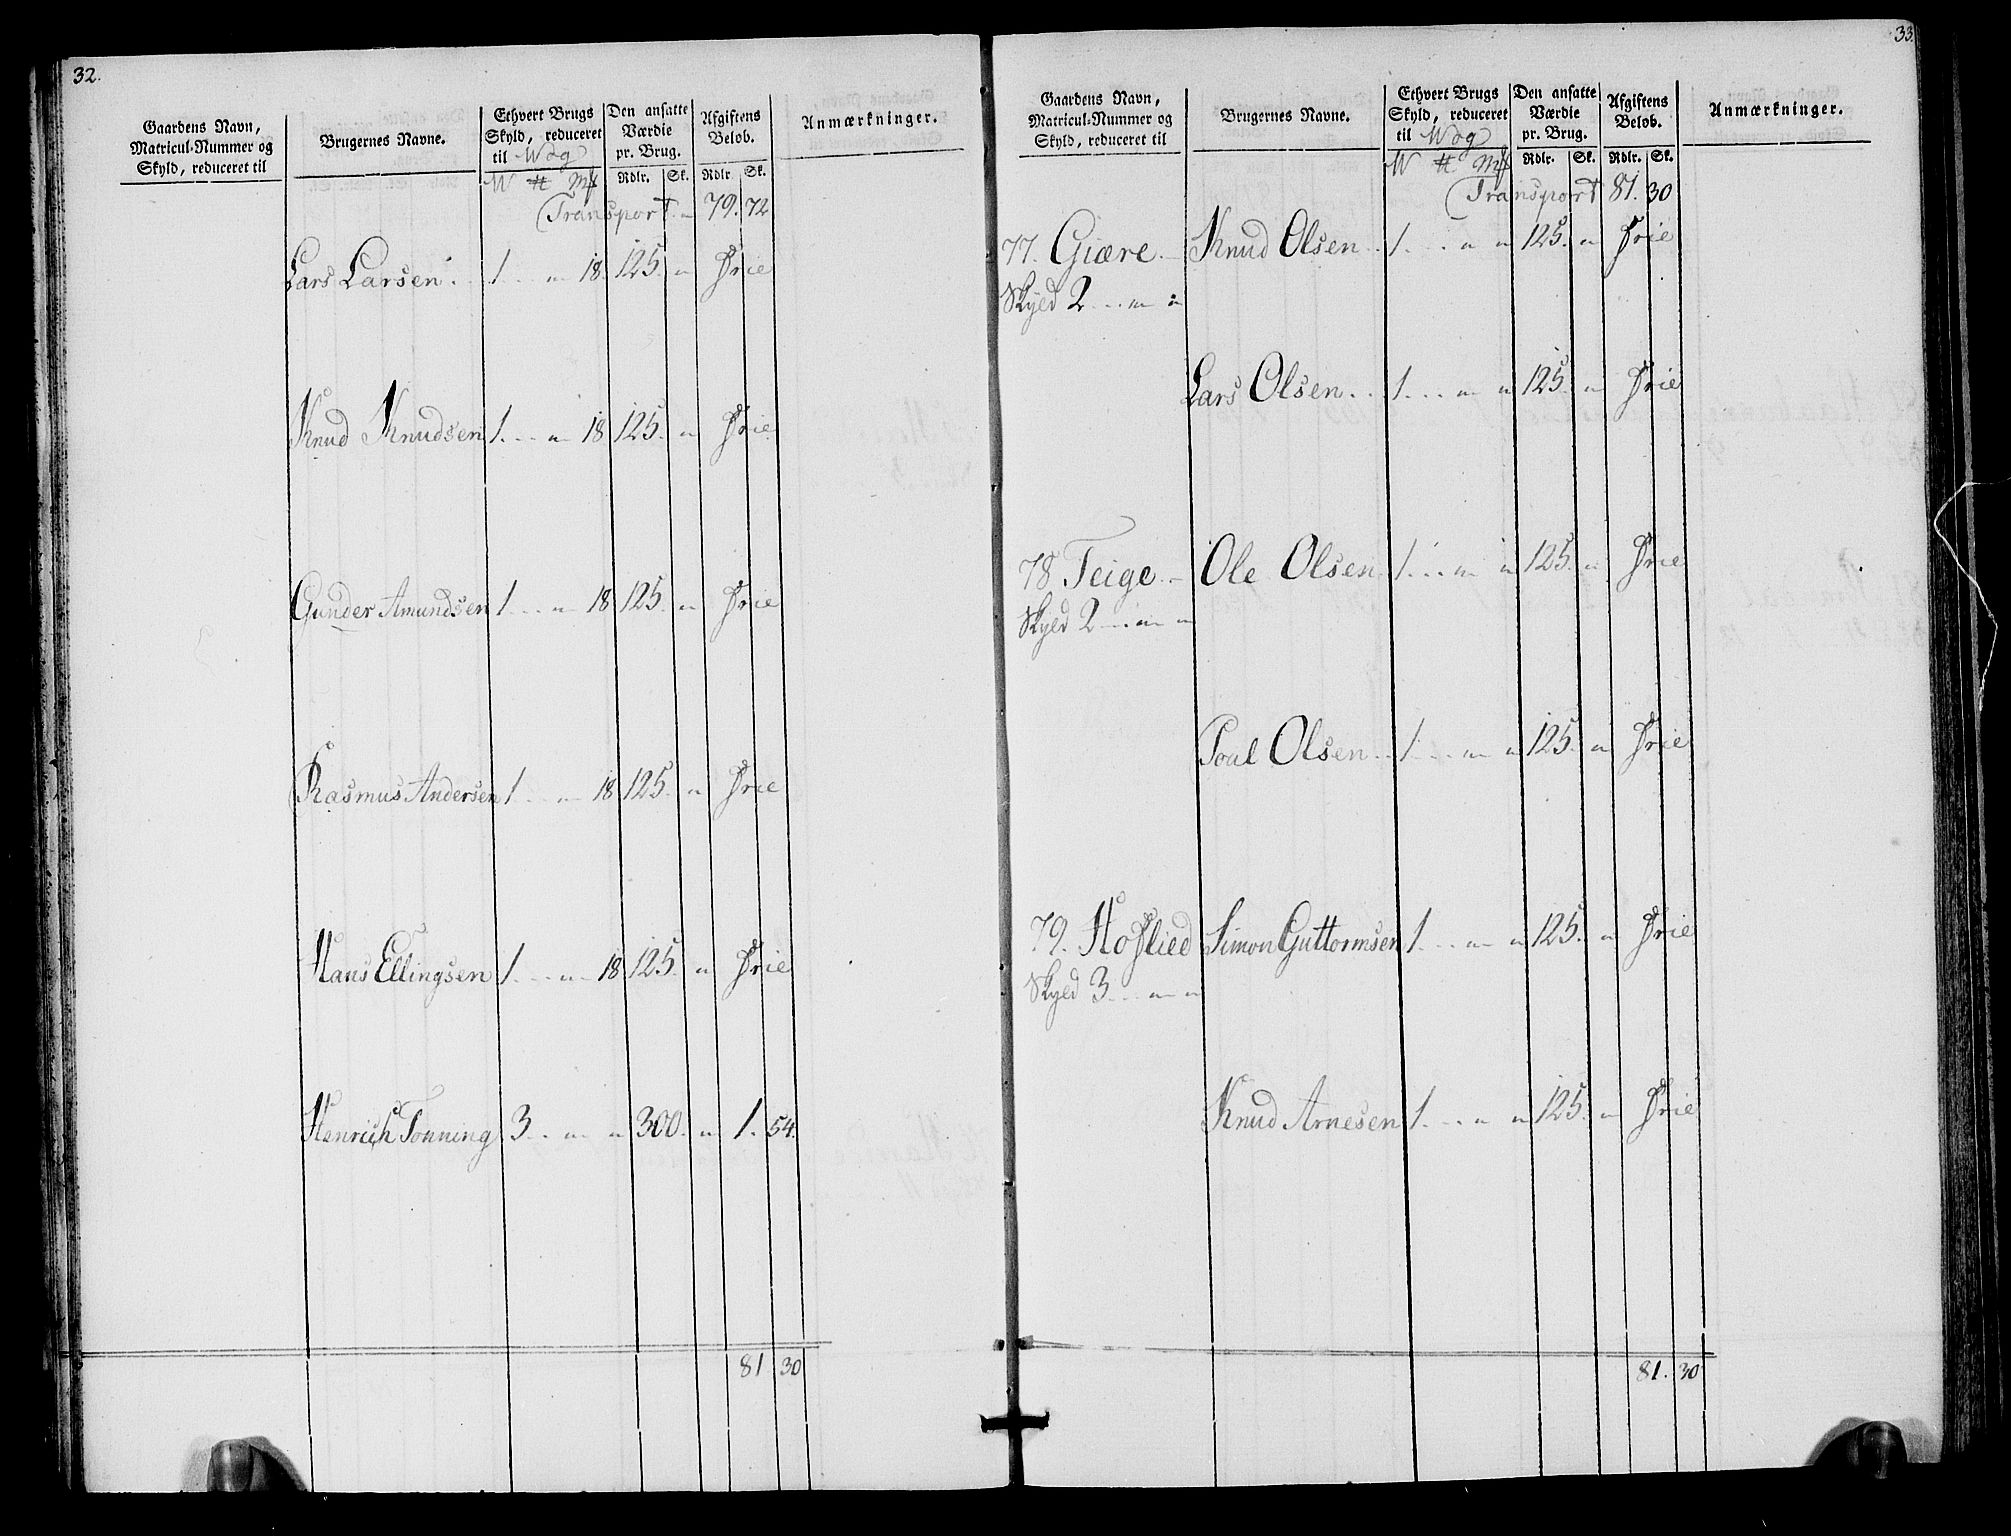 32.
Gaardens Navn, Matricul-Nummer og Skyld, reduceret til
Brugernes Navne.
Ethvert Brugs Skyld, reduceret til Wog
Den ansatte Værdie pr. Brug.
Afgiftens Belob.
Anmærkninger.
W ℔ Mk Rdlr. Sk. Rdlr Sk.
Transport.. 79. 72
Lars Larsen. 1. . . " 18. 125. " Frie
Knud Knudsen 1. . . " 18 125. " Frie
Gunder Amundsen 1. . . " 18 125. " Frie
Rasmus Andersen 1. . . " 18 125. " Frie
Hans Ellingsen 1. . . " 18 125. " Frie
Henrich Tonning 3. . " " 300. " 1. 54.
81 30
33.
Gaardens Navn, Matricul-Nummer og Skyld, reduceret til
Brugernes Navne.
Ethvert Brugs Skyld, reduceret til Wog
Den ansatte Værdie pr. Brug.
Afgiftens Belob.
Anmærkninger.
W ℔ Mk Rdlr. Sk. Rdlr. Sk.
Transport 81. 30
77. Giære. Knud Olsen. . 1. . . " " 125. " Frie
Skyld 2 . . " "
Lars Olsen. . 1. . . " " 125. " Frie
78 Teige. Ole Olsen 1. . . " " 125. " Frie
Skyld 2 . . " "
Poul Olsen. . 1. . . " " 125. " Frie
79. Hoflied Simon Guttormsen 1. . . " " 125. " Frie
Skyld 3 . . " "
Knud Arnesen 1. . . " " 125. " Frie
81. 30